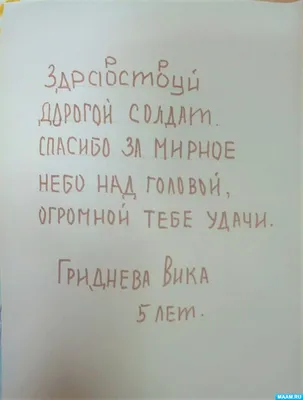 Здравствуй
ДОРОГОЙ СОЛДАТ.
СПАСИБО ЗА МИРНОЕ
НЕБО НАД ГОЛОВОЙ,
ОГРОМНОЙ ТЕБЕ УДАЧИ.
ГРИДНЕВА ВИКА
5 ЛЕТ.
MAAM.RU